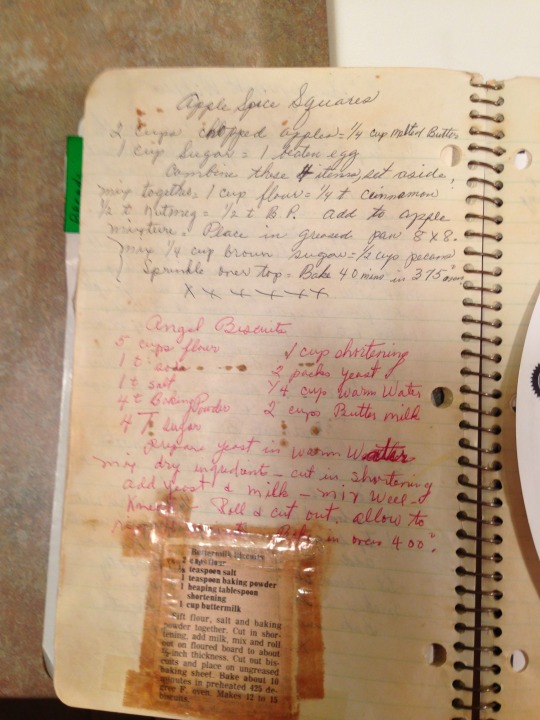 Apple Spice Squares
2 cups chopped apples = 1/4 cup melted Butter
1 cup Sugar = 1 beaten egg
Combine these 4 items, set aside,
mix together = 1 cup flour = 1/4 t cinnamon
1/2 t Nutmeg = 1/2 t B.P. add to apple
mixture = Place in greased pan 8x8.
mix 1/4 cup brown sugar = 1/2 cup pecans
Sprinkle over top = Bake 40 mins in 375° oven
x x x x x x x
Angel Biscuits
5 cups flour
1 t soda
1 t salt
4 t Baking Powder
4 T. sugar
1 cup shortening
2 packs yeast
1/4 cup warm Water
2 cups Butter milk
Prepare yeast in warm Water
Mix dry ingredients - cut in shortening
add yeast & milk - mix well -
Knead - Roll & cut out allow to
in oven 400°.
Buttermilk Biscuits
2 cups flour
teaspoon salt
1 teaspoon baking powder
1 heaping tablespoon
shortening
1 cup buttermilk
Sift flour, salt and baking
powder together. Cut in shor-
tening, add milk, mix and roll
out on floured board to about
-inch thickness. Cut out bis-
cuits and place on ungreased
baking sheet. Bake about 10
minutes in preheated 425 de-
gree F. oven. Makes 12 to 15
biscuits.